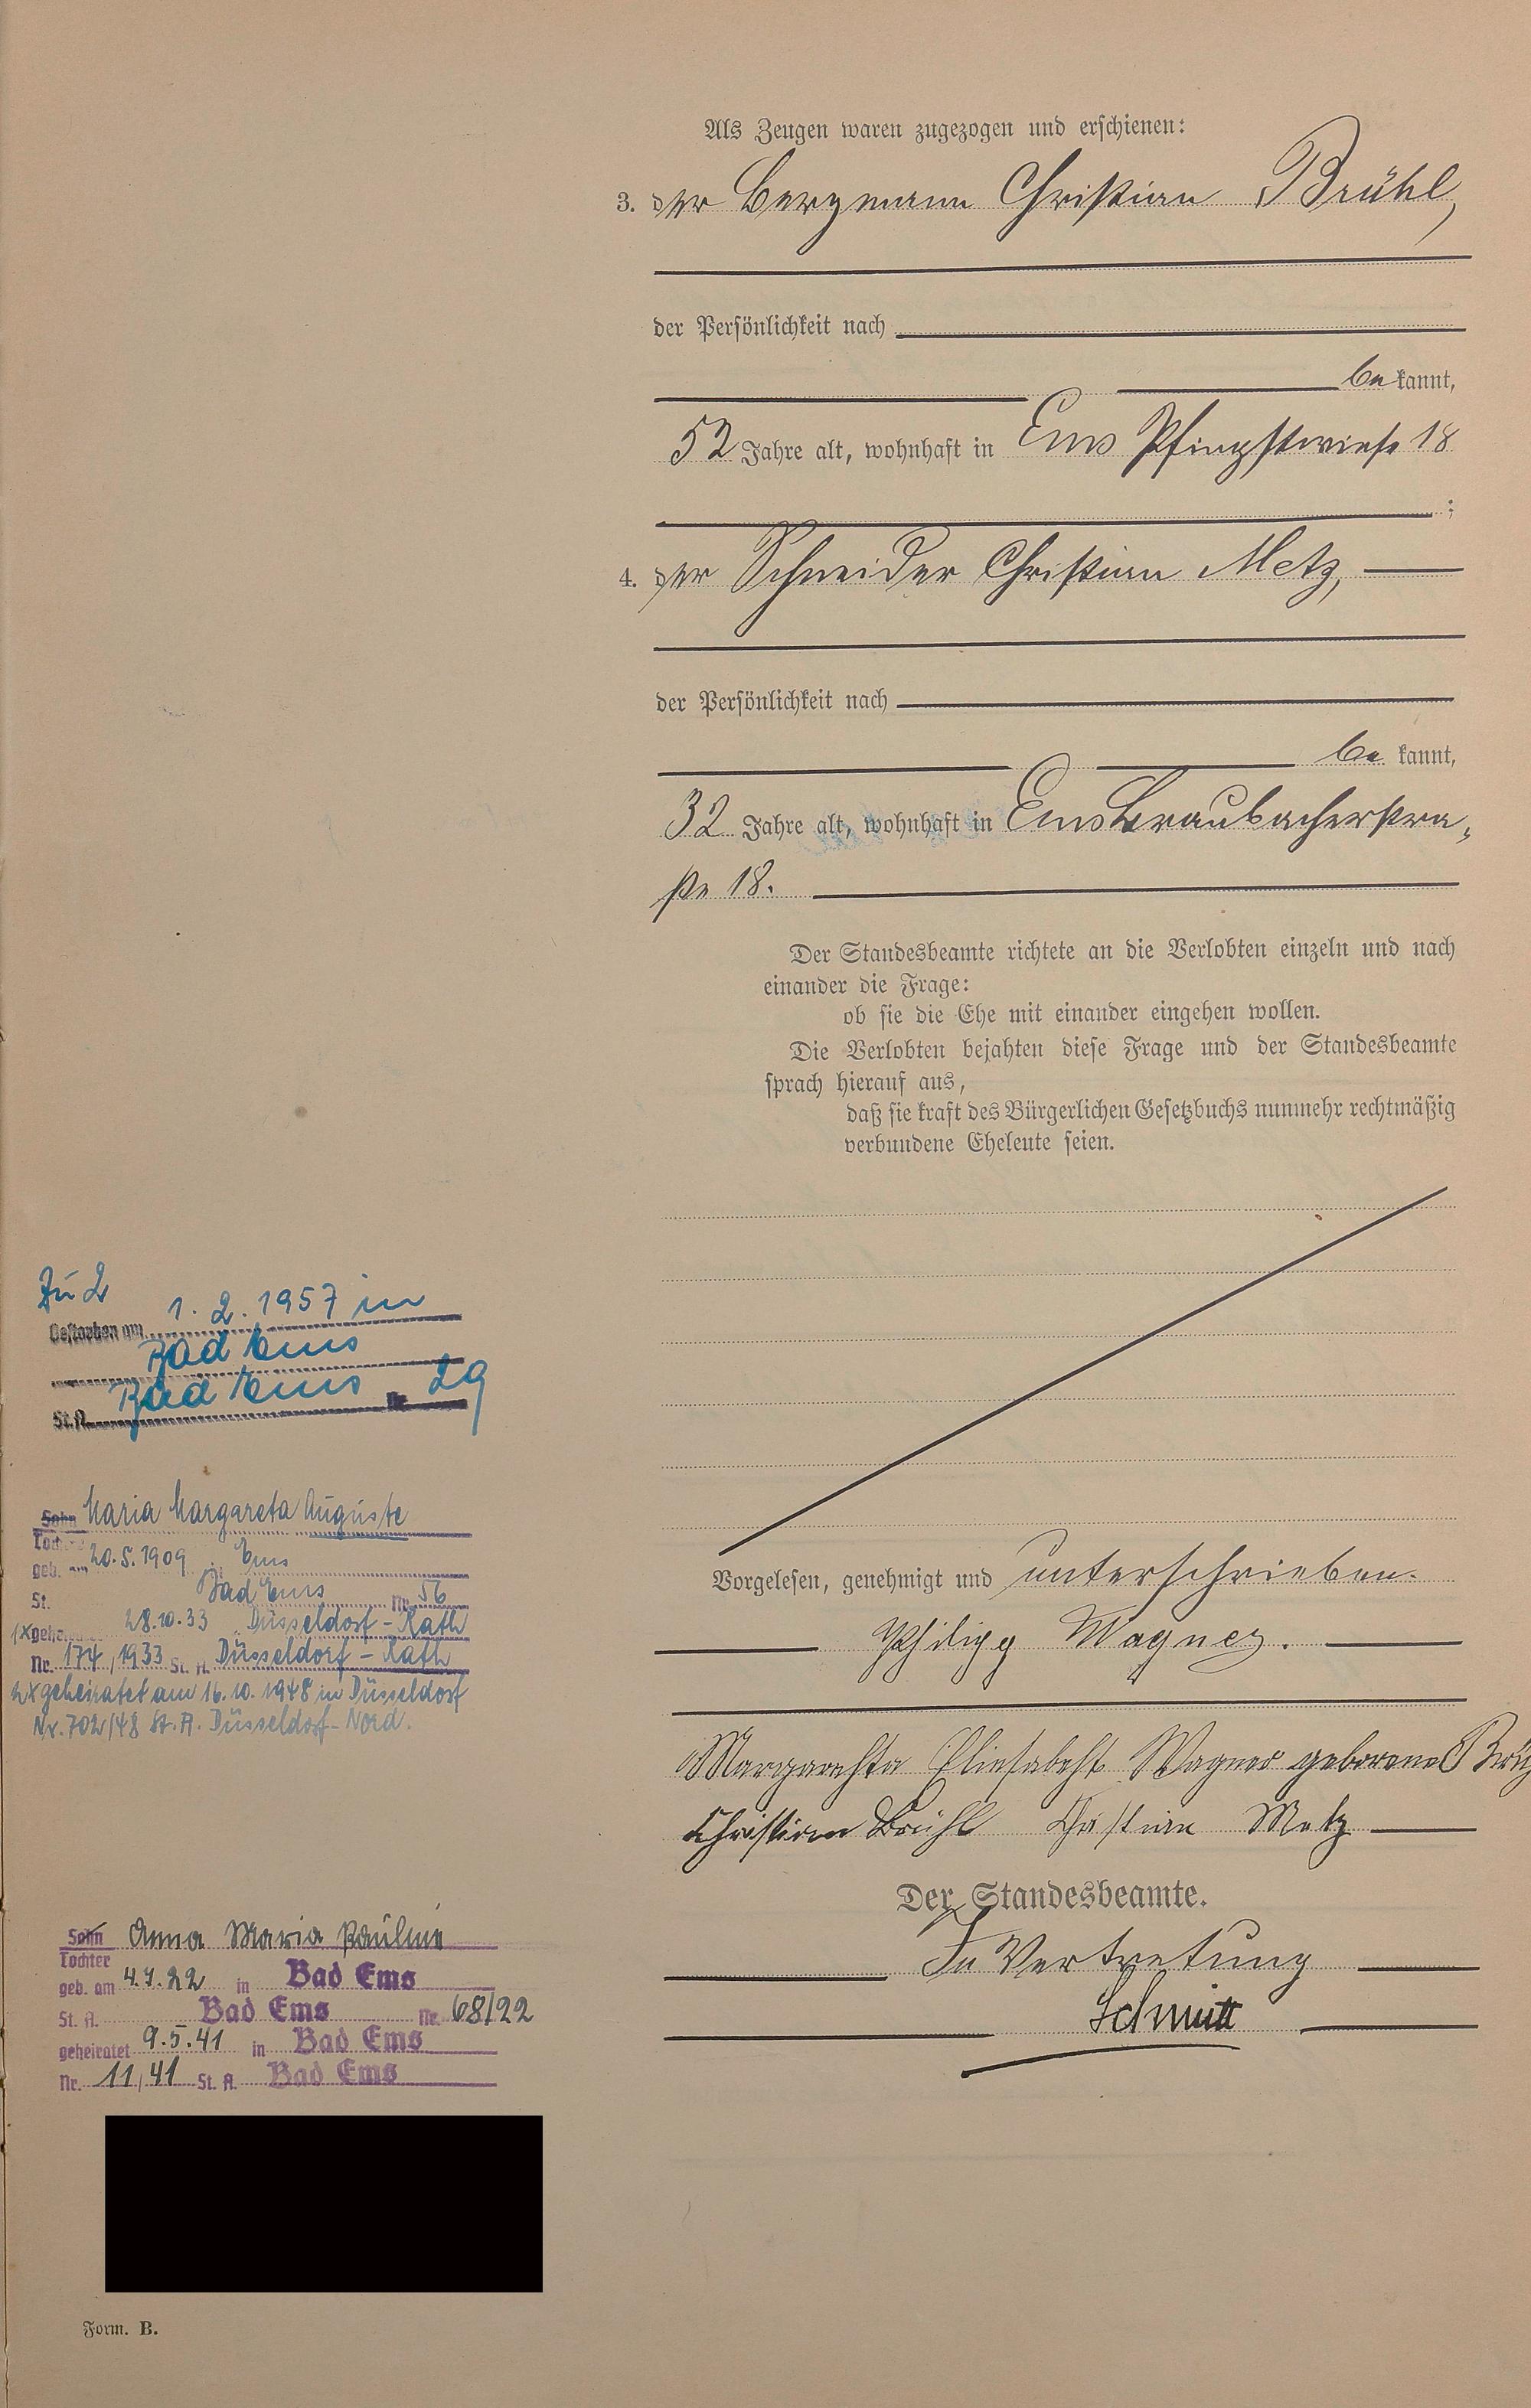 Als Zeugen waren zugezogen und erschienen:
3. der Bergmann Christian Brühl,
der Persönlichkeit nach
be kannt,
52 Jahre alt, wohnhaft in Ems Pfingstwiese 18
;
4. der Schneider Christian Metz,
der Persönlichkeit nach
be kannt,
32 Jahre alt, wohnhaft in Ems Braubacherstra-
ße 18.
Der Standesbeamte richtete an die Verlobten einzeln und nach
einander die Frage:
ob sie die Ehe mit einander eingehen wollen.
Die Verlobten bejahten diese Frage und der Standesbeamte
sprach hierauf aus,
daß sie kraft des Bürgerlichen Gesetzbuchs nunmehr rechtmäßig
verbundene Eheleute seien.
Vorgelesen, genehmigt und unterschrieben.
Philipp Wagner.
Margarehta Eliesabeht Wagner geborene
Christian Brühl Christian Metz
Der Standesbeamte.
In Vertretung
Schmitt
Zu 2
Gestorben am 1. 2. 1957 in
Bad Ems
St. A. Bad Ems Nr. 29
Sohn Maria Margareta Auguste
Tochter
geb. am 20.5.1909 Ems
St. Bad Ems Nr. 56
1x 28.10.33 Düsseldorf-Rath
Nr. 174/1933 St. A. Düsseldorf-Rath
2x geheiratet am 16.10.1948 in Düsseldorf
Nr. 702/48 St. A. Düsseldorf-Nord.
Sohn Anna Maria Pauline
Tochter
geb. am 4.7.22 in Bad Ems
St. A. Bad Ems Nr. 68/22
geheiratet 9.5.41 in Bad Ems
Nr. 11/41 St. A. Bad Ems
Form. B.